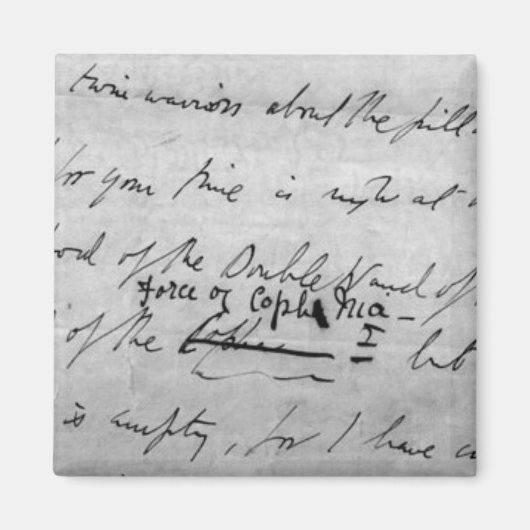 twin warriors about the pill
for your time is nigh at
ord of the Double Wand of
Force of Coph Nia –
of the I but
is empty, for I have